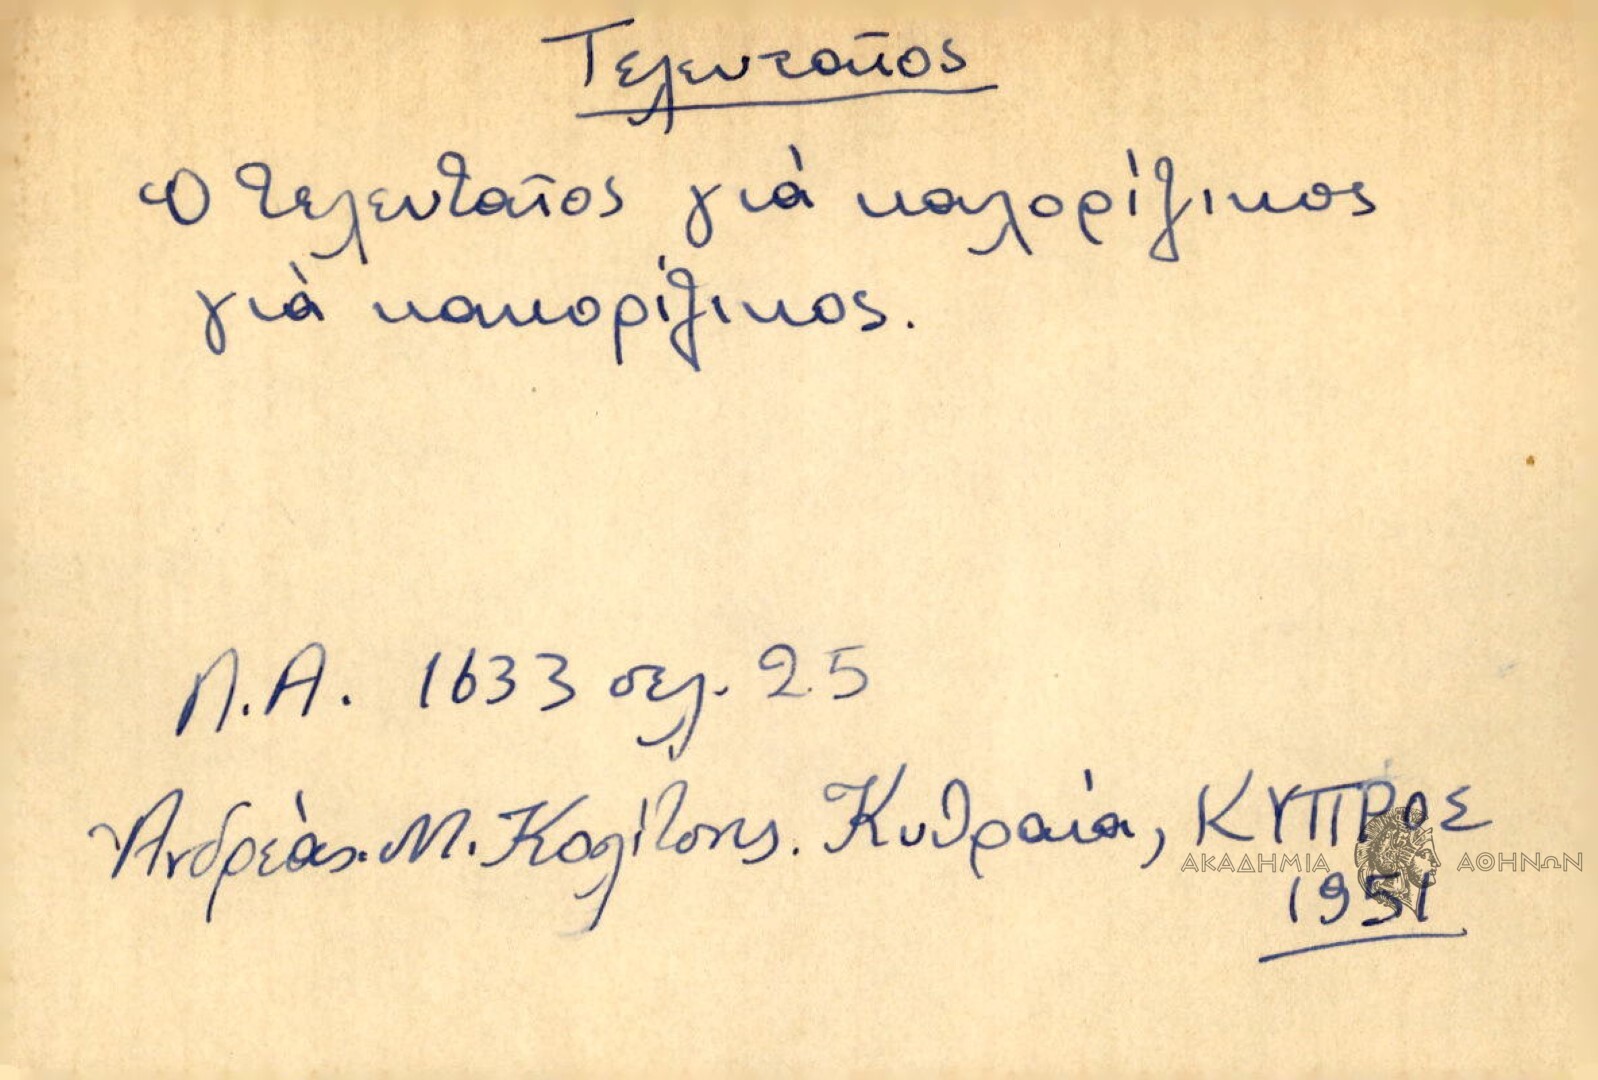 Τελευταῖος
Ὁ τελευταῖος γιά καλορίζικος
γιά κακορίζικος.
Λ.Α. 1633 σελ. 25
Ἀνδρέας Μ. Κολίτσης. Κυθραία, ΚΥΠΡΟΣ
ΑΚΑΔΗΜΙΑ ΑΘΗΝΩΝ
1951